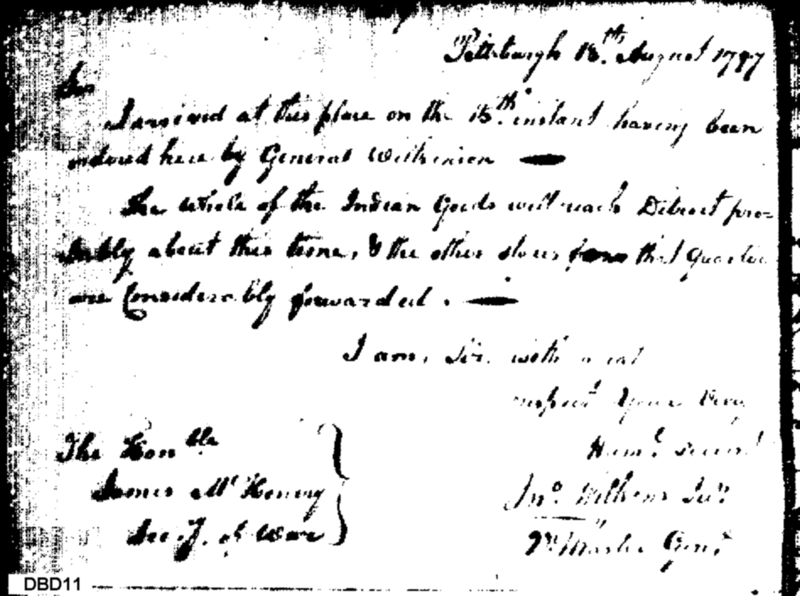 Pittsburgh 18th August 1797
Sir
I arrived at this place on the 15th instant having been
ordered here by General Wilkinson —
The whole of the Indian Goods will reach Detroit pro-
bably about this time, & the other stores for that Quarter
are Considerably forwarded. —
I am, Sir, with great
respect Your Very
Hume. Servant
Jno. Wilkins Junr.
Qr. Master Genl.
The Honble
James McHenry
Secy. of War
DBD11